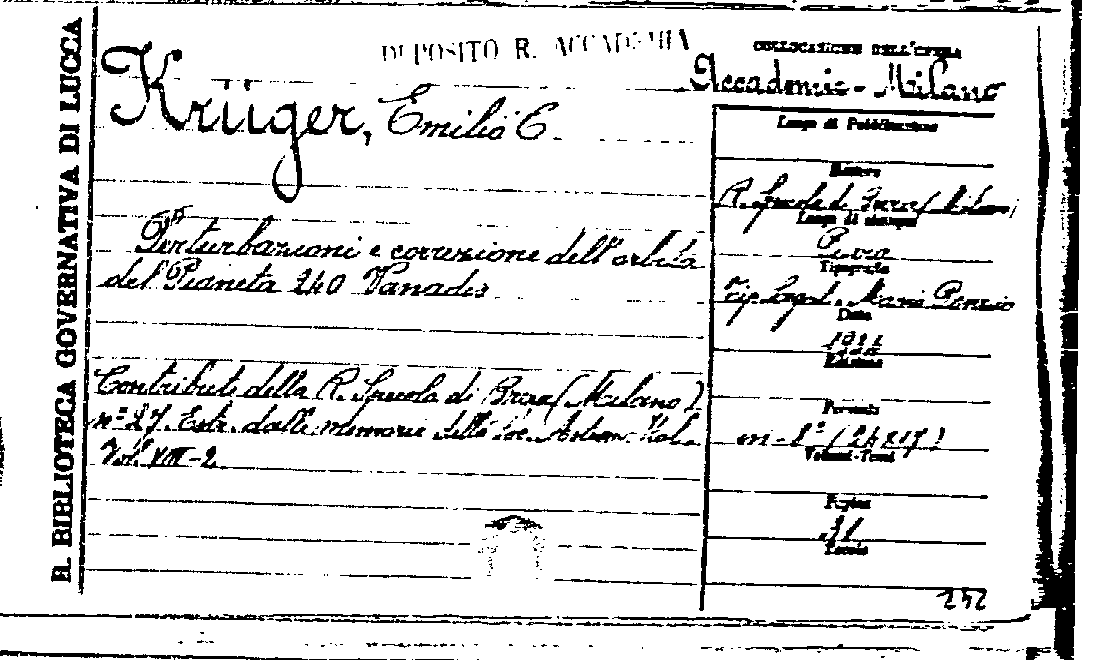 R. BIBLIOTECA GOVERNATIVA DI LUCCA
DEPOSITO R. ACCADEMIA
Krüger, Emilio C.
Perturbazioni e correzione dell'orbita
del Pianeta 240 Vanadis
Contributi della R. Specola di Brera (Milano)
n° 27. Estr. dalle memorie della Soc. Astron. Ital.
Vol. VIII-2
COLLOCAZIONE DELL'OPERA
Accademie - Milano
Luogo di Pubblicazione
Editore
R. Specola di Brera (Milano)
Luogo di stampa
Pavia
Tipografia
Tip. Legat. Mario Ponzio
Data
Edizione
Formato
in-8° (24x17)
Volumi-Tomi
Pagine
31
Tavole
252